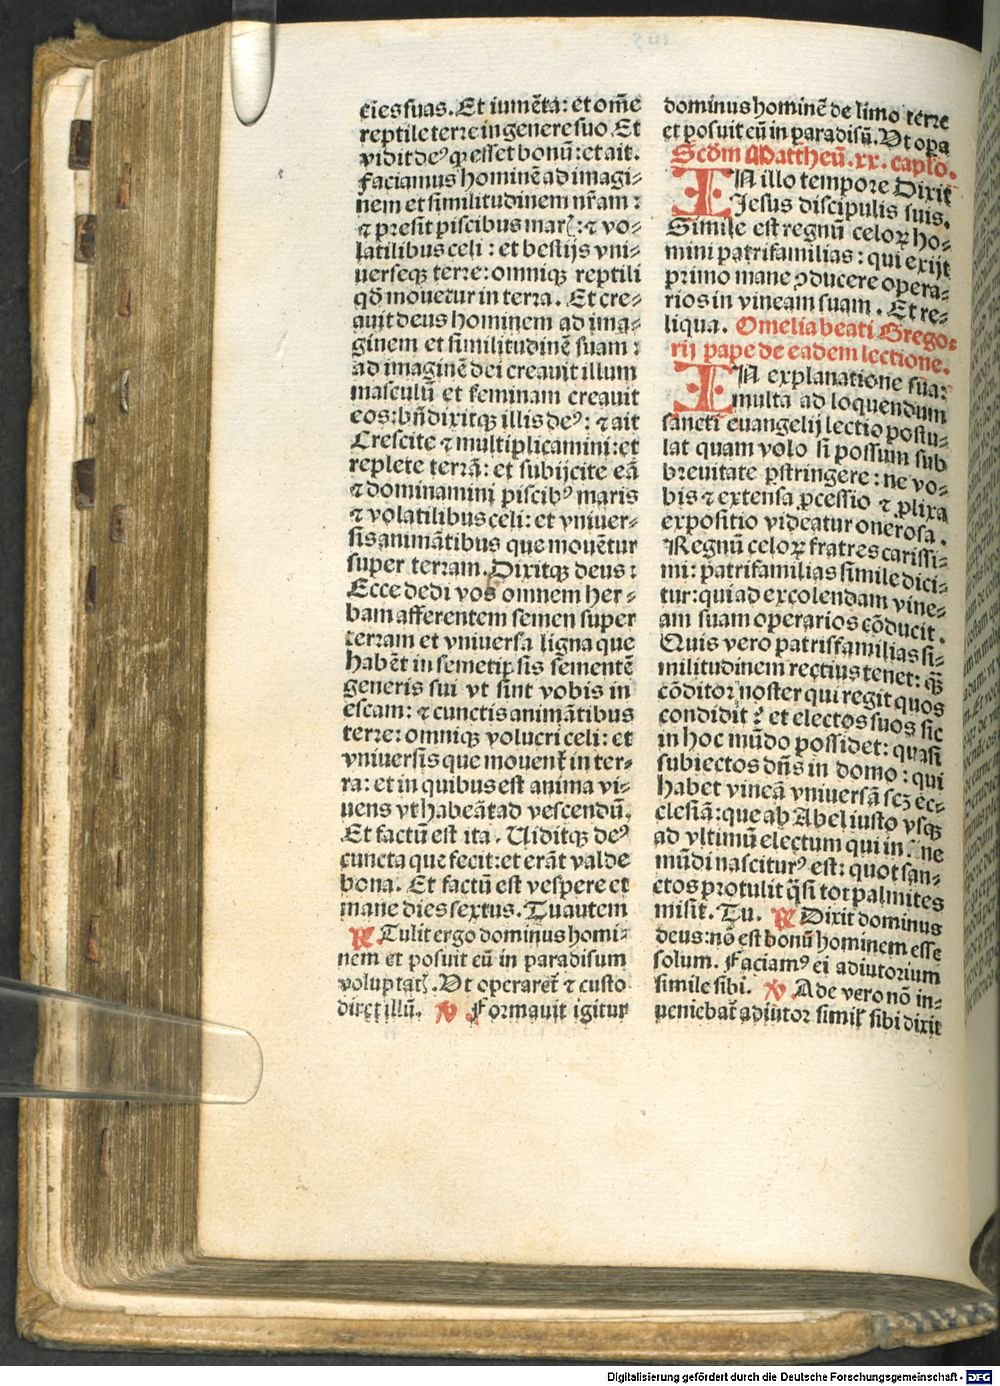 cies suas. Et iumēta: et om̄e
reptile terre in genere suo. Et
vidit deꝰ ꝙ esset bonū: et ait.
Faciamus hominē ad imagi-
nem et similitudinem nr̄am:
⁊ presit piscibus marꝭ: ⁊ vo-
latilibus celi: et bestijs vni-
uerseqꝫ terre: omniqꝫ reptili
qd̄ mouetur in terra. Et cre-
auit deus hominem ad ima-
ginem et similitudinē suam:
ad imaginē dei creauit illum
masculū et feminam creauit
eos: bn̄dixitqꝫ illis deꝰ: ⁊ ait
Crescite ⁊ multiplicamini: et
replete terrā: et subijcite eā
⁊ dominamini piscibꝰ maris
⁊ volatilibus celi: et vniuer-
sis animātibus que mouētur
super terram. Dixitqꝫ deus:
Ecce dedi vos omnem her-
bam afferentem semen super
terram et vniuersa ligna que
habēt in semetipsis sementē
generis sui vt sint vobis in
escam: ⁊ cunctis animātibus
terre: omniqꝫ volucri celi: et
vniuersis que mouent̄ in ter-
ra: et in quibus est anima vi-
uens vt habeāt ad vescendū.
Et factū est ita. Uiditqꝫ deꝰ
cuncta que fecit: et erāt valde
bona. Et factū est vespere et
mane dies sextus. Tu autem
℟ Tulit ergo dominus homi-
nem et posuit eū in paradisum
voluptatꝭ. Vt operaret̄ ⁊ custo
diret illū. ℣ Formauit igitur
dominus hominē de limo terre
et posuit eū in paradisū. Vt opa
Scd̄m Mattheū. xx. caplo.
IN illo tempore Dixit
Jesus discipulis suis.
Simile est regnū celoꝝ ho-
mini patrifamilias: qui exijt
primo mane ꝯducere opera-
rios in vineam suam. Et re-
liqua. Omelia beati Grego-
rij pape de eadem lectione.
IN explanatione sua:
multa ad loquendum
sancti euangelij lectio postu-
lat quam volo si possum sub
breuitate ꝑstringere: ne vo-
bis ⁊ extensa ꝓcessio ⁊ ꝓlixa
expositio videatur onerosa.
Regnū celoꝝ fratres carissi-
mi: patrifamilias simile dici-
tur: qui ad excolendam vine-
am suam operarios cōducit.
Quis vero patrisfamilias si-
militudinem rectius tenet: qꝫ̄
cōditor noster qui regit quos
condidit: et electos suos sic
in hoc mūdo possidet: quasi
subiectos dn̄s in domo: qui
habet vineā vniuersā scꝫ ec-
clesiā: que ab Abel iusto vsqꝫ
ad vltimū electum qui in ne
mūdi nasciturꝰ est: quot san-
ctos protulit q̄si tot palmites
misit. Tu. ℟ Dixit dominus
deus: nō est bonū hominem esse
solum. Faciamꝰ ei adiutorium
simile sibi. ℣ Ade vero nō in-
veniebat̄ adiutor simil̄ sibi dixit
Digitalisierung gefördert durch die Deutsche Forschungsgemeinschaft - DFG